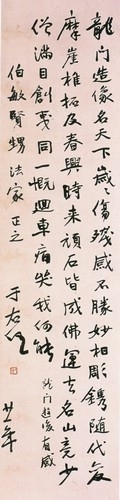 龍门造像名天下歲歲傷殘感不勝妙相彫鐫隨代變
摩崖椎拓及春興時来頑石皆成佛運去名山竟少
僧滿目創夷同一慨迴車痛哭我何能 龍门遊後有感
伯敏賢甥 法家 正之 于右任
廿年